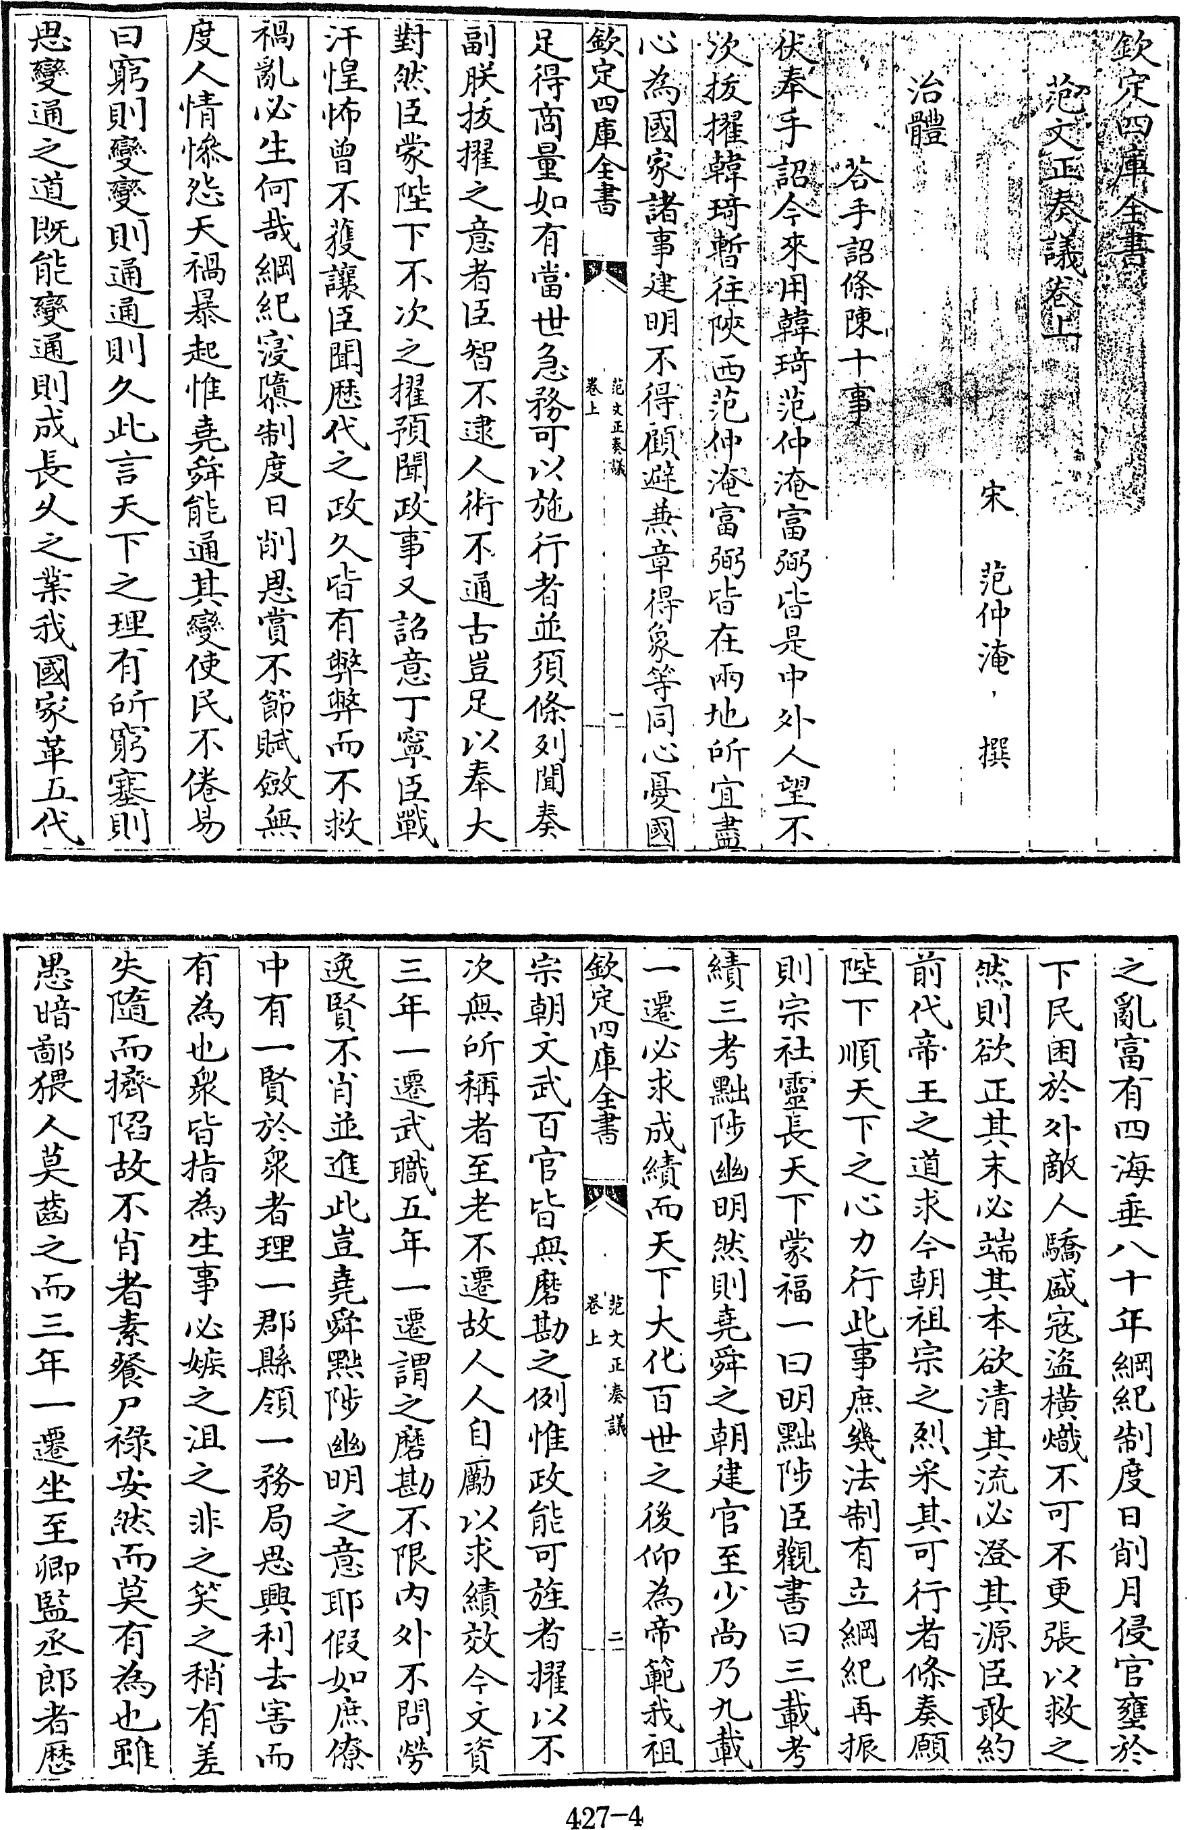 欽定四庫全書
范文正奏議卷上
宋 范仲淹 撰
治體
荅手詔條陳十事
伏奉手詔今來用韓琦范仲淹富弼皆是中外人望不
次拔擢韓琦暫往陝西范仲淹富弼皆在兩地所宜盡
心為國家諸事建明不得顧避兼章得象等同心憂國
欽定四庫全書 范文正奏議 卷上 一
足得商量如有當世急務可以施行者並須條列聞奏
副朕拔擢之意者臣智不逮人術不通古豈足以奉大
對然臣蒙陛下不次之擢預聞政事又詔意丁寧臣戰
汗惶怖曾不獲讓臣聞歷代之政久皆有弊弊而不救
禍亂必生何哉綱紀寖隳制度日削恩賞不節賦斂無
度人情慘怨天禍暴起惟堯舜能通其變使民不倦易
曰窮則變變則通通則久此言天下之理有所窮塞則
思變通之道既能變通則成長久之業我國家革五代
之亂富有四海垂八十年綱紀制度日削月侵官壅於
下民困於外敵人驕盛寇盜橫熾不可不更張以救之
然則欲正其末必端其本欲清其流必澄其源臣敢約
前代帝王之道求今朝祖宗之烈采其可行者條奏願
陛下順天下之心力行此事庶幾法制有立綱紀再振
則宗社靈長天下蒙福一曰明黜陟臣觀書曰三載考
績三考黜陟幽明然則堯舜之朝建官至少尚乃九載
一遷必求成績而天下大化百世之後仰為帝範我祖
欽定四庫全書 范文正奏議 卷上 二
宗朝文武百官皆無磨勘之例惟政能可旌者擢以不
次無所稱者至老不遷故人人自勵以求績效今文資
三年一遷武職五年一遷謂之磨勘不限內外不問勞
逸賢不肖並進此豈堯舜黜陟幽明之意耶假如庶僚
中有一賢於衆者理一郡縣領一務局思興利去害而
有為也衆皆指為生事必嫉之沮之非之笑之稍有差
失隨而擠陷故不肖者素餐尸祿安然而莫有為也雖
愚暗鄙猥人莫齒之而三年一遷坐至卿監丞郎者歷
427-4